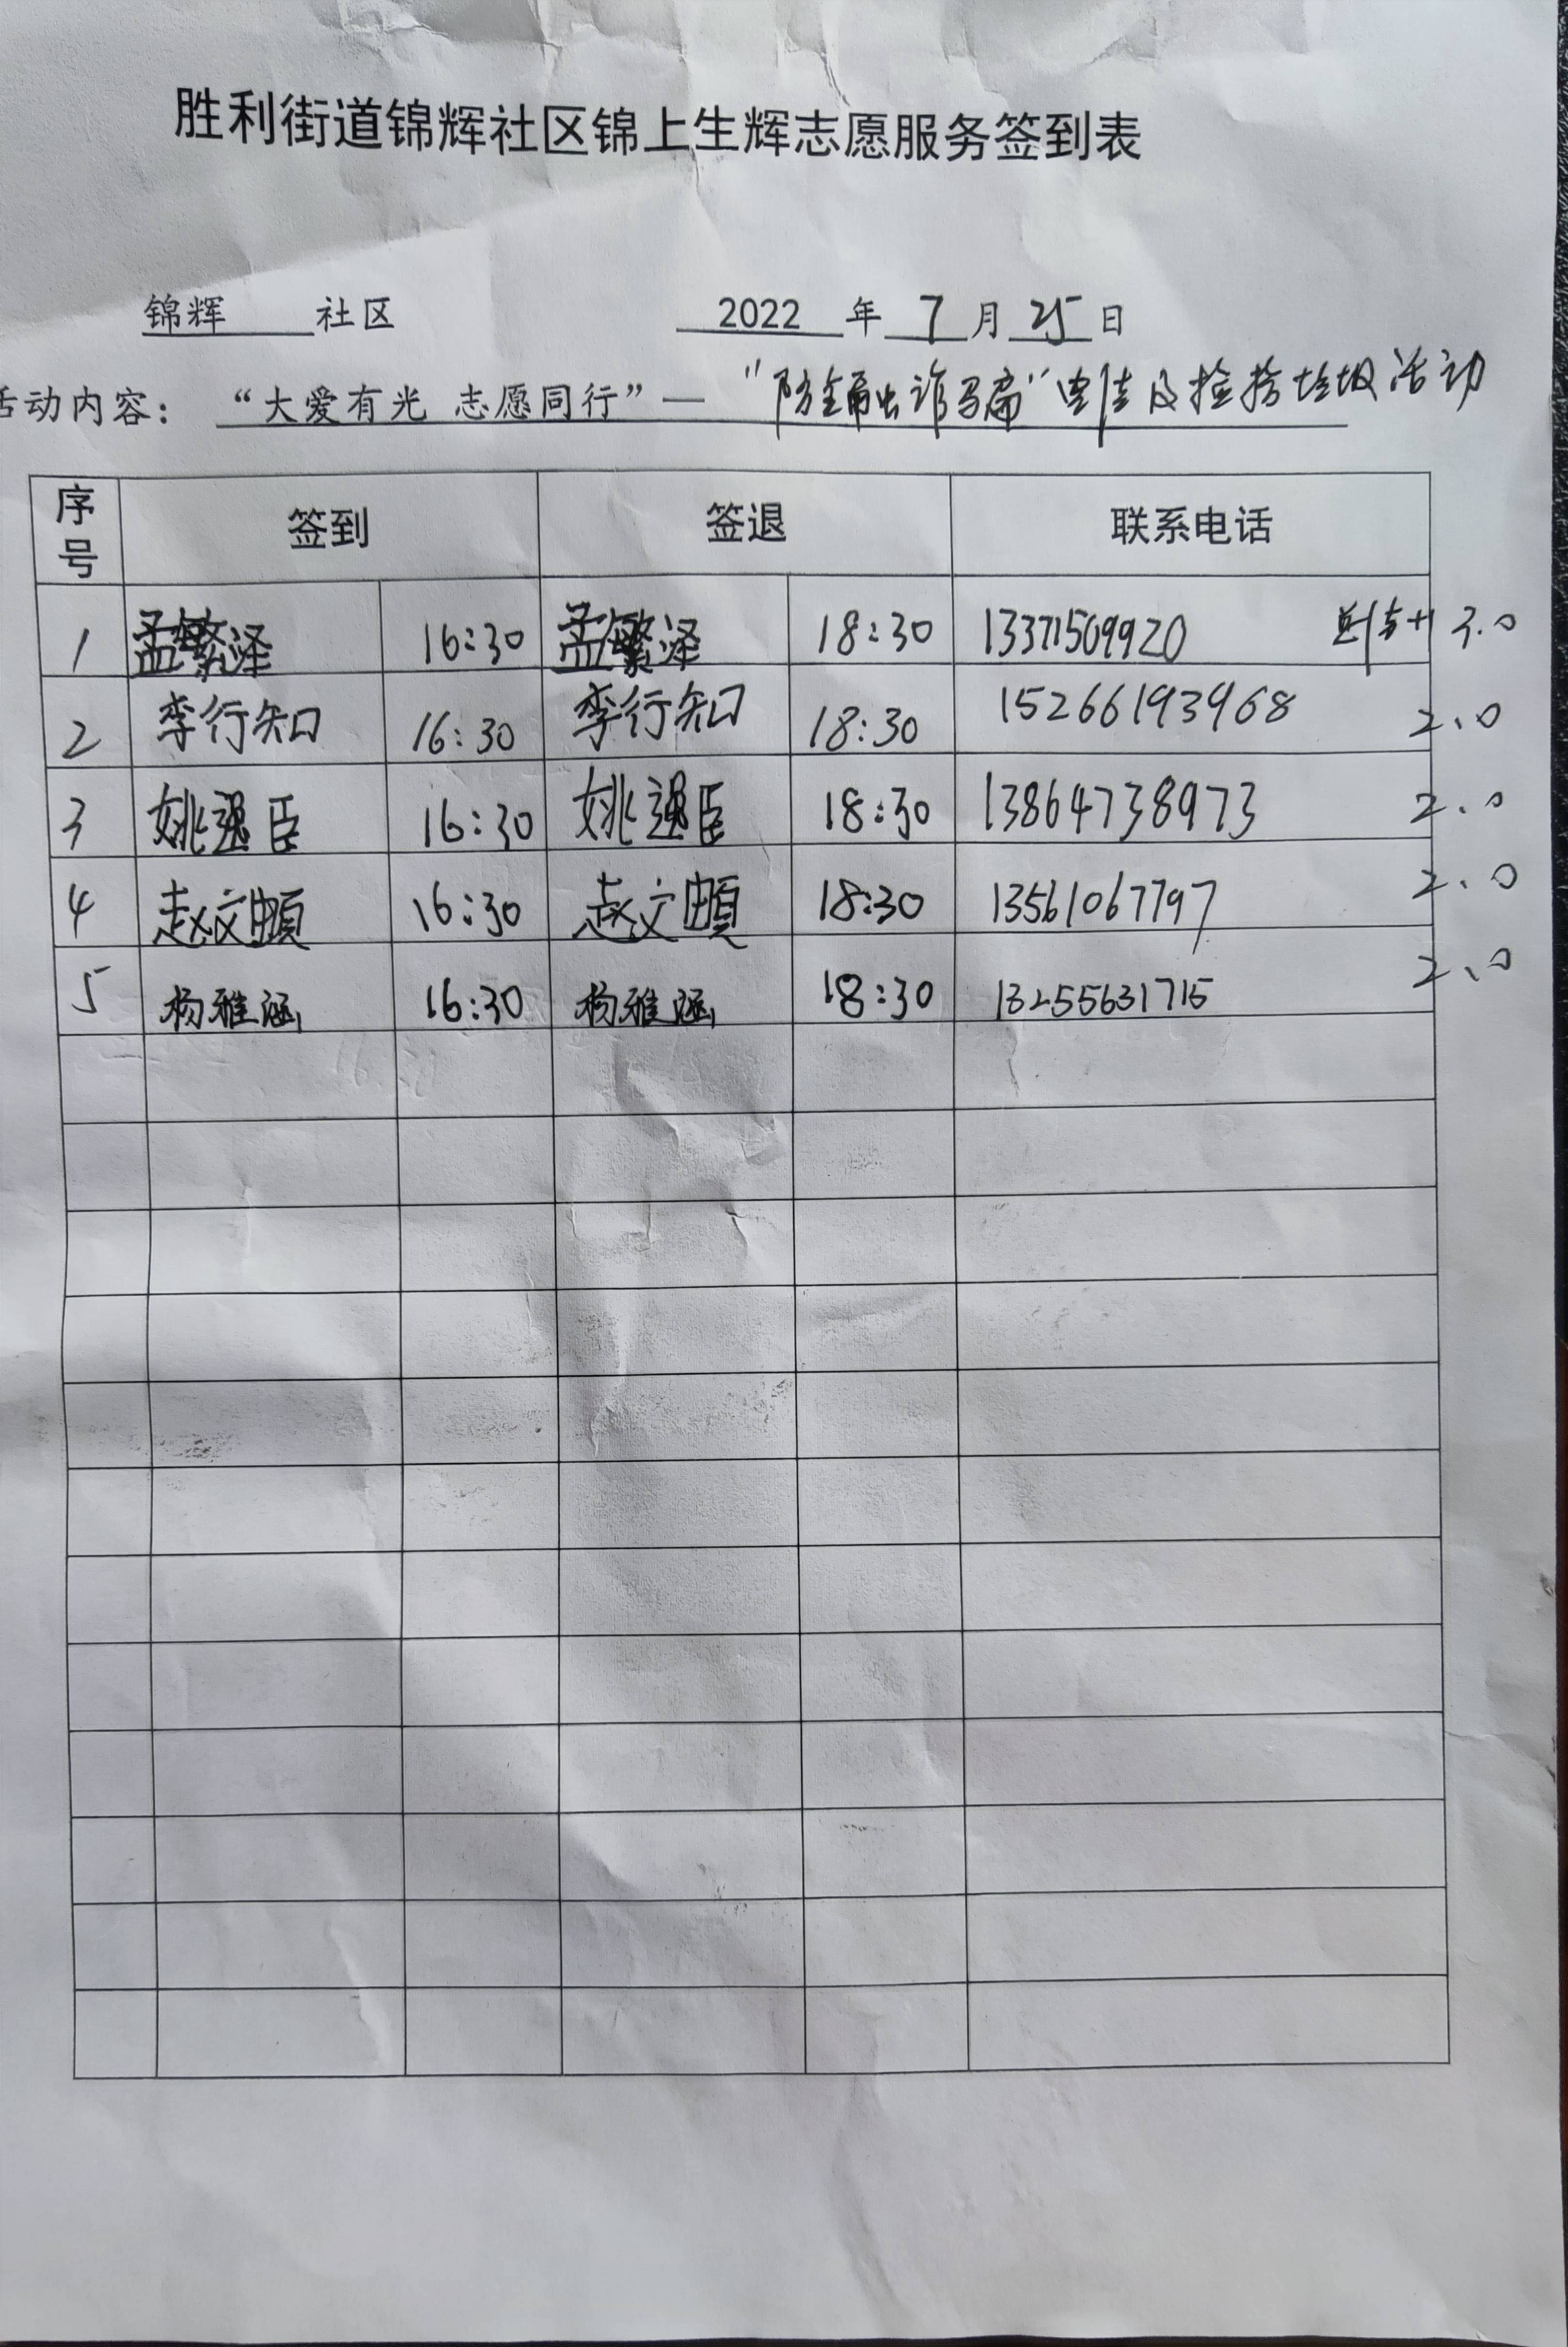 胜利街道锦辉社区锦上生辉志愿服务签到表
锦辉 社区 2022 年 7 月 25 日
活动内容： “大爱有光 志愿同行”— “防金融诈骗”宣传及捡拾垃圾活动
序号 签到 签退 联系电话
1 孟繁泽 16:30 孟繁泽 18:30 13371509920 3.0
2 李行知 16:30 李行知 18:30 15266193968 2.0
3 姚逸臣 16:30 姚逸臣 18:30 13864738973 2.0
4 赵文 16:30 赵文 18:30 13561067797 2.0
5 杨雅涵 16:30 杨雅涵 18:30 13255631715 2.0